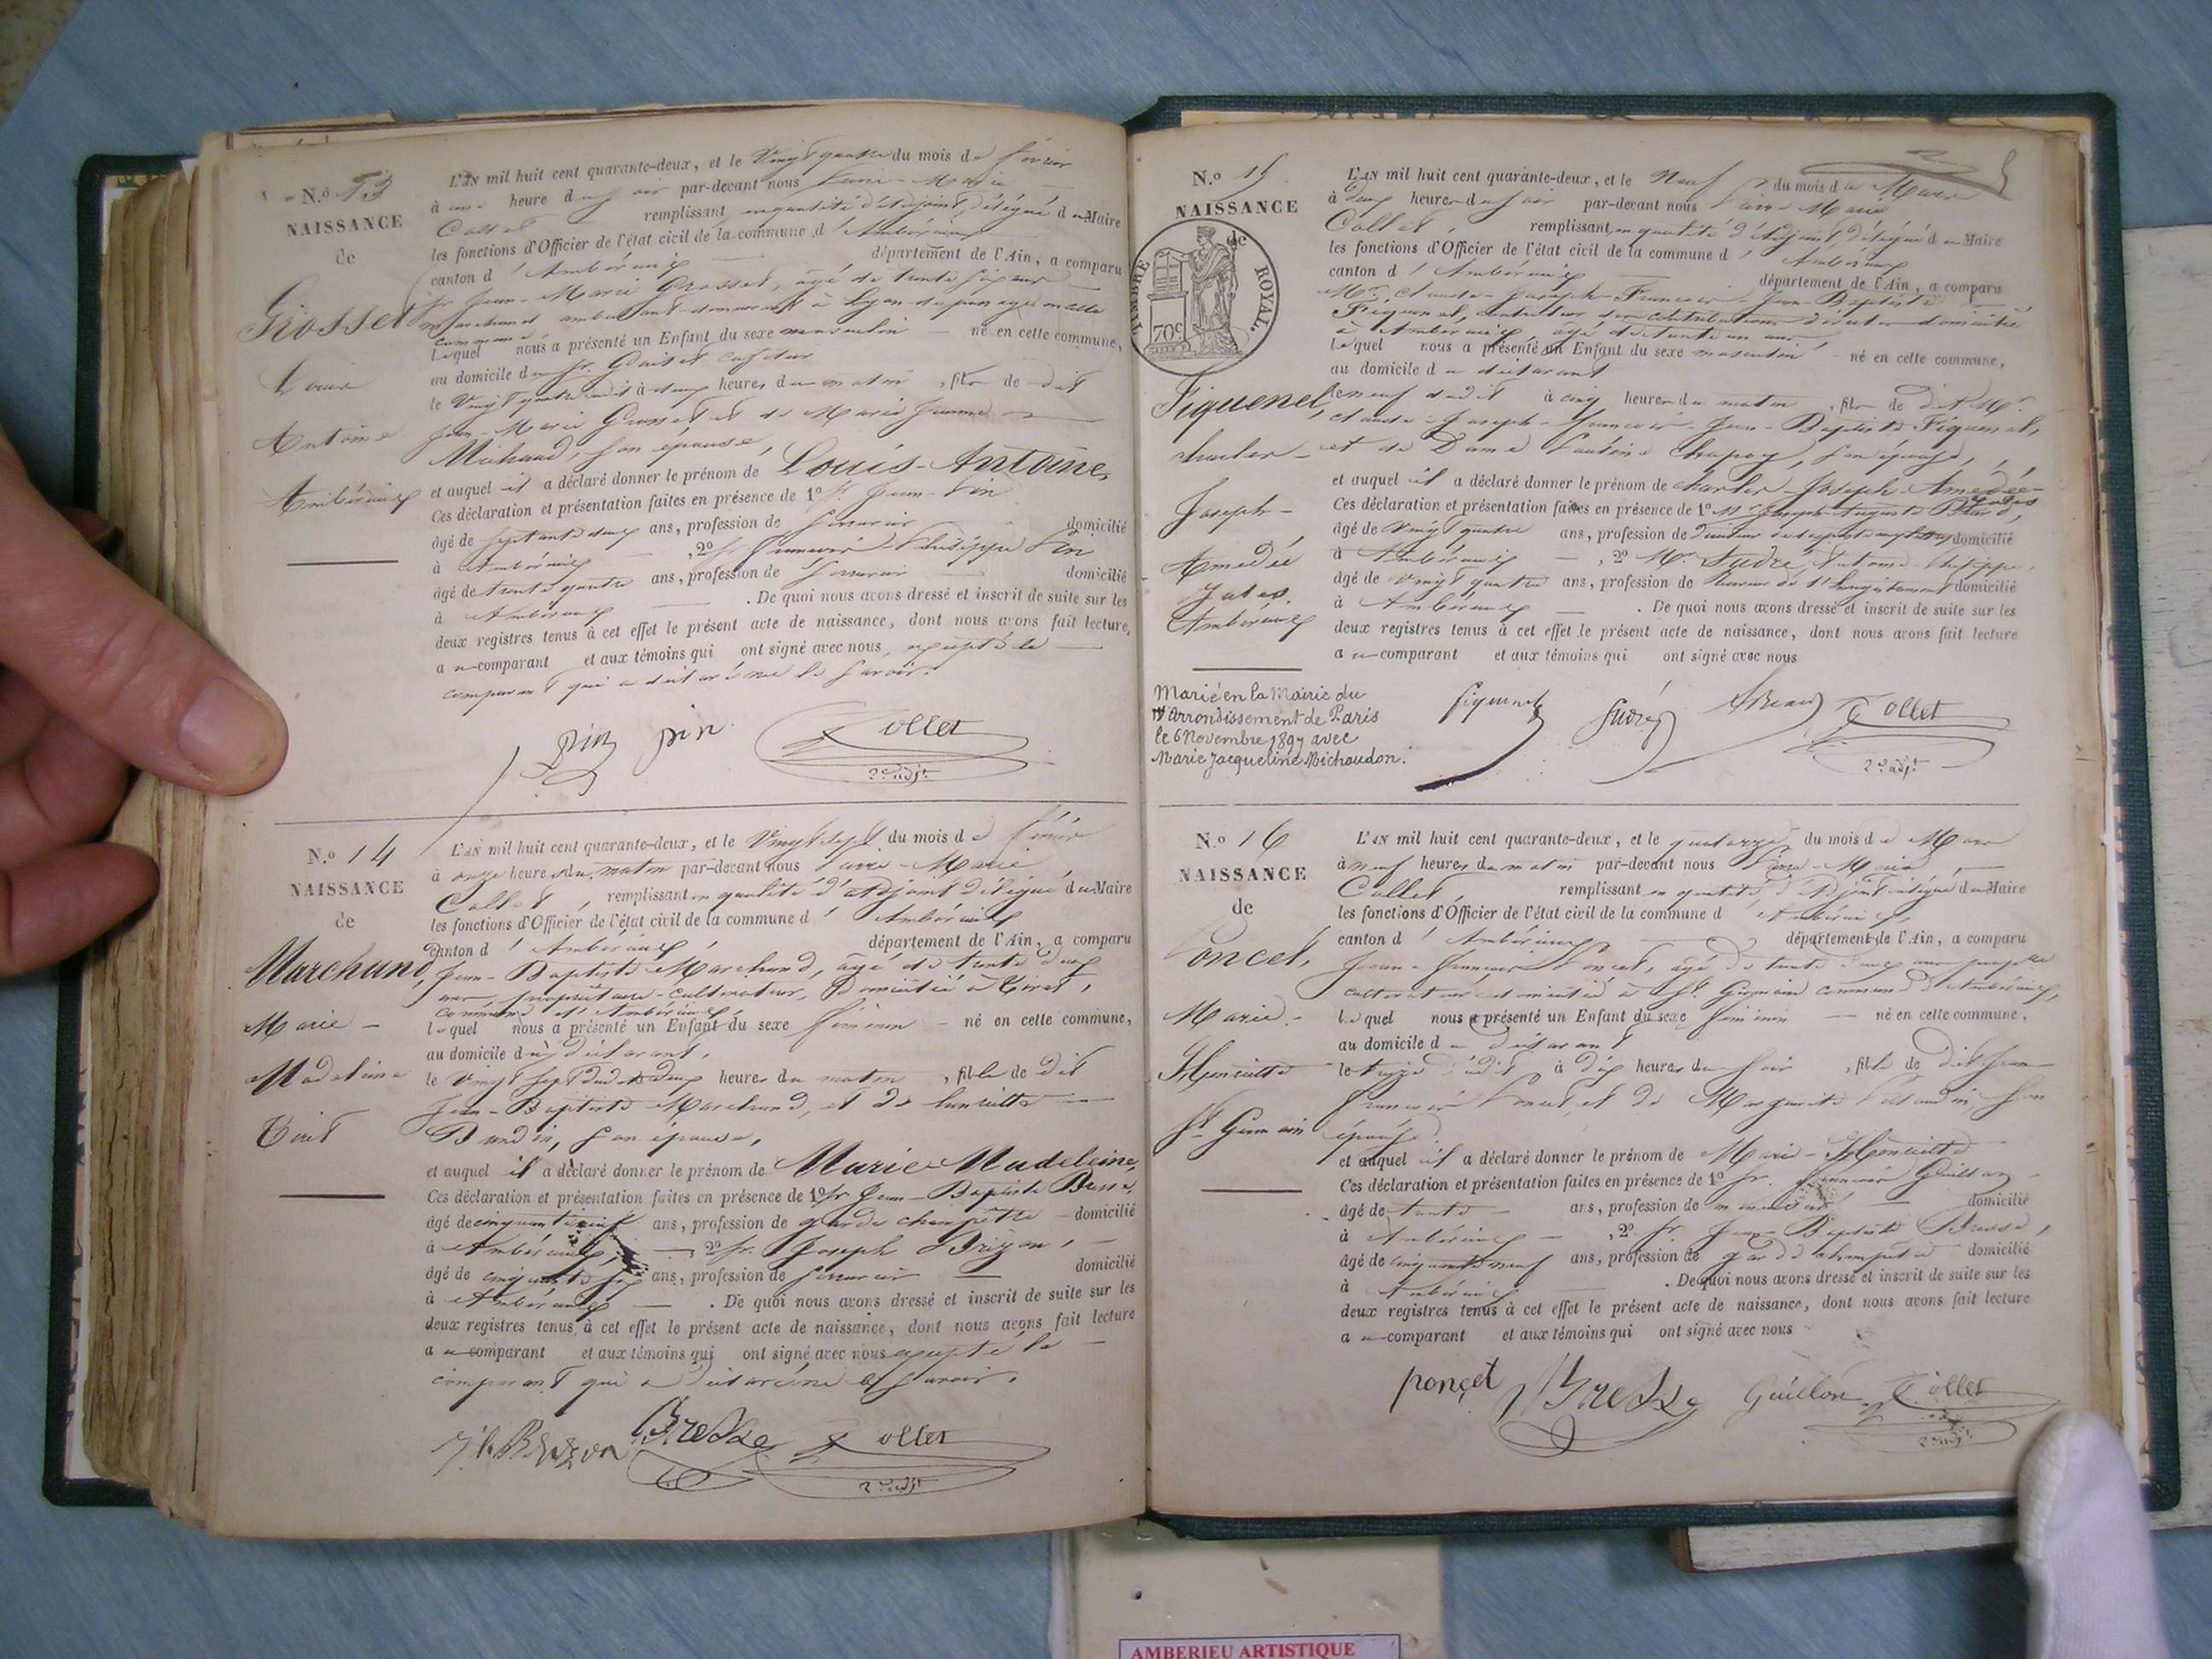 N.o 13
NAISSANCE
de
Grosset
Louis
Antoine
Ambérieux
L'AN mil huit cent quarante-deux, et le Vingt quatre du mois de février
à une heure du soir par-devant nous Pierre-Marie
Collet remplissant en qualité d'adjoint délégué du Maire
les fonctions d'Officier de l'état civil de la commune d'Ambérieux
canton d'Ambérieux département de l'Ain, a comparu
sr Jean-Marie Grosset, agé de trente six ans
marchand ambulant demeurant à Lyon
commune
Lequel nous a présenté un Enfant du sexe masculin né en cette commune,
au domicile du sr.
le Vingt quatre à deux heures du matin, fils de dit
Jean-Marie Grosset et de Marie Jeanne
Michaud, son épouse,
et auquel il a déclaré donner le prénom de Louis-Antoine,
Ces déclaration et présentation faites en présence de 1o Sr Jean Pin
âgé de septante deux ans, profession de serrurier domicilié
à Ambérieux, 2o sr Philippe Pin
âgé de trente quatre ans, profession de serrurier domicilié
à Ambérieux. De quoi nous avons dressé et inscrit de suite sur les
deux registres tenus à cet effet le présent acte de naissance, dont nous avons fait lecture,
au comparant et aux témoins qui ont signé avec nous, excepté le
comparant qui a déclaré ne le savoir.
Pin pin Collet
2e adjt
N.o 14
NAISSANCE
de
Marchand,
Marie-
Madeleine
Tiret
L'AN mil huit cent quarante-deux, et le Vingt sept du mois de février
à onze heures du matin par-devant nous Pierre-Marie
Collet, remplissant en qualité d'adjoint délégué du Maire
les fonctions d'Officier de l'état civil de la commune d'Ambérieux
canton d'Ambérieux département de l'Ain, a comparu
Jean-Baptiste Marchand, âgé de trente deux
ans, propriétaire-cultivateur, domicilié à Tiret,
commune d'Ambérieux
lequel nous a présenté un Enfant du sexe féminin né en cette commune,
au domicile du déclarant,
le Vingt sept dudit à deux heures du matin, fille de dit
Jean-Baptiste Marchand, et de
son épouse,
et auquel il a déclaré donner le prénom de Marie-Madeleine,
Ces déclaration et présentation faites en présence de 1o sr Jean-Baptiste Bresse,
âgé de cinquante neuf ans, profession de garde champêtre domicilié
à Ambérieux, 2o sr. Joseph Brizon,
âgé de cinquante six ans, profession de serrurier domicilié
à Ambérieux. De quoi nous avons dressé et inscrit de suite sur les
deux registres tenus à cet effet le présent acte de naissance, dont nous avons fait lecture
au comparant et aux témoins qui ont signé avec nous excepté le
comparant qui a déclaré ne le savoir.
Bresse Collet
2e adjt
N.o 15
NAISSANCE
de
TIMBRE ROYAL
70c
Fiquenel,
charles-
Joseph-
Amédée
Jules.
Ambérieux
L'AN mil huit cent quarante-deux, et le Neuf du mois de Mars
à deux heures du soir par-devant nous Pierre Marie
Collet, remplissant en qualité d'adjoint délégué du Maire
les fonctions d'Officier de l'état civil de la commune d'Ambérieux
canton d'Ambérieux département de l'Ain, a comparu
Mr. Claude-Joseph-François-Jean-Baptiste
Fiquenel, contrôleur des contributions directes domicilié
à Ambérieux, agé de trente un ans,
Lequel nous a présenté un Enfant du sexe masculin né en cette commune,
au domicile du déclarant
le neuf dudit à cinq heures du matin, fils de dit Mr.
claude-Joseph-François-Jean-Baptiste Fiquenel,
et de Dame Pauline Chapoy, son épouse,
et auquel il a déclaré donner le prénom de charles-Joseph-Amédée
Jules
Ces déclaration et présentation faites en présence de 1o Mr Joseph-Auguste
âgé de vingt quatre ans, profession de domicilié
à Ambérieux, 2o Mr. Sudre, Antoine Philippe,
âgé de vingt quatre ans, profession de Receveur de l'Enregistrement domicilié
à Ambérieux. De quoi nous avons dressé et inscrit de suite sur les
deux registres tenus à cet effet le présent acte de naissance, dont nous avons fait lecture
au comparant et aux témoins qui ont signé avec nous
Marié en la Mairie du
Arrondissement de Paris
le 6 Novembre 1897 avec
Marie Jacqueline Michaudon.
fiquenel Sudre Collet
2e adjt
N.o 16
NAISSANCE
de
Poncet,
Marie-
Henriette
St Germain
L'AN mil huit cent quarante-deux, et le quatorze du mois de Mars
à neuf heures du matin par-devant nous Pierre-Marie
Collet, remplissant en qualité d'adjoint délégué du Maire
les fonctions d'Officier de l'état civil de la commune d'Ambérieux,
canton d'Ambérieux département de l'Ain, a comparu
Jean-françois Poncet, agé de trente deux ans propre
cultivateur domicilié à St. Germain commune d'Ambérieux,
lequel nous a présenté un Enfant du sexe féminin né en cette commune,
au domicile du déclarant
le treize dudit à dix heures du soir, fille de dit Jean
françois Poncet, et de Marguerite son
épouse
et auquel il a déclaré donner le prénom de Marie-Henriette
Ces déclaration et présentation faites en présence de 1o sr. françois Guillon
âgé de trente ans, profession de domicilié
à Ambérieux, 2o sr Jean-Baptiste Bresse,
âgé de cinquante neuf ans, profession de garde champêtre domicilié
à Ambérieux. De quoi nous avons dressé et inscrit de suite sur les
deux registres tenus à cet effet le présent acte de naissance, dont nous avons fait lecture
au comparant et aux témoins qui ont signé avec nous
ponçet Bresse Guillon Collet
2e adjt
AMBERIEU ARTISTIQUE